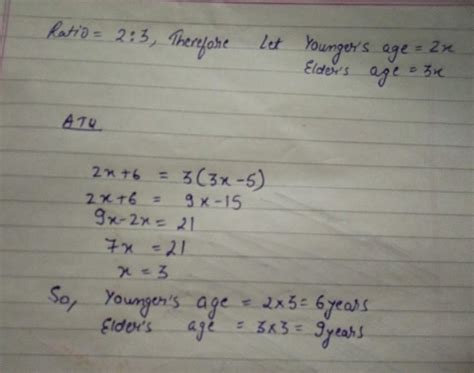 Ratio = 2:3, Therefore Let Younger's age = 2x
Elder's age = 3x
ATQ
2x+6 = 3(3x-5)
2x+6 = 9x-15
9x-2x = 21
7x = 21
x = 3
So, Younger's age = 2x3 = 6years
Elder's age = 3x3 = 9years